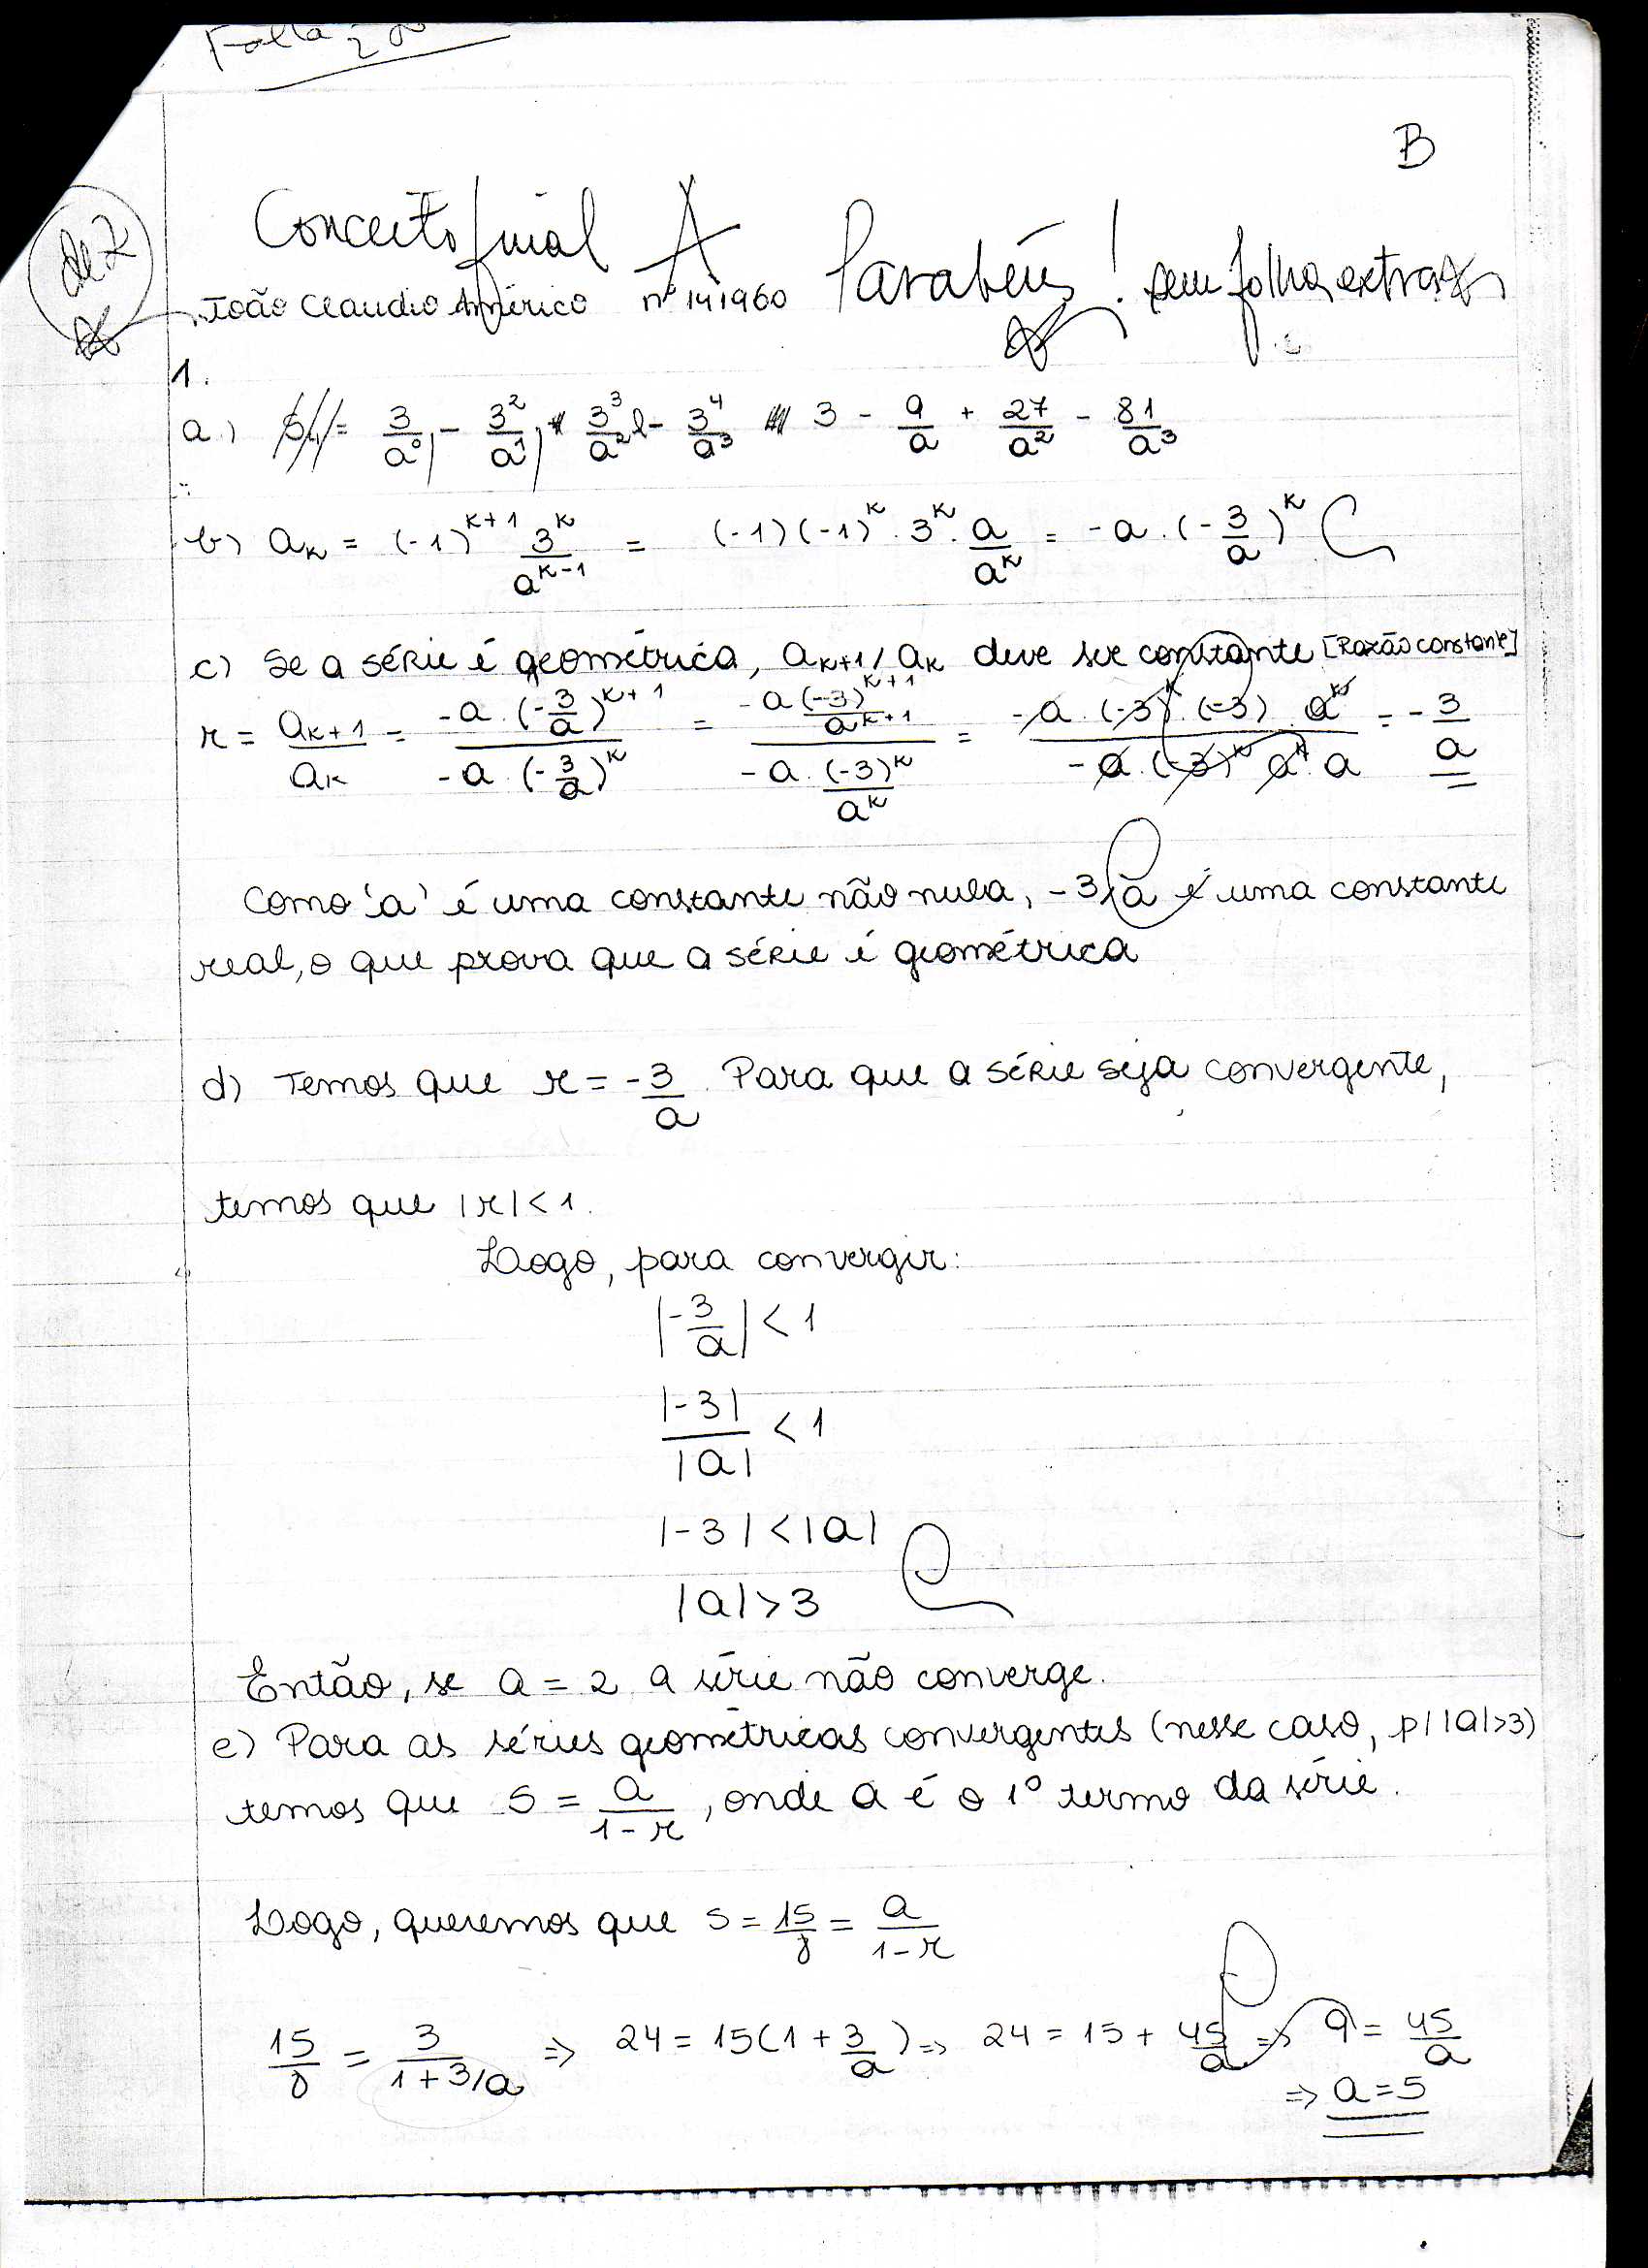 Folha
B
de 2
Conceito final A Parabéns! sem folha extra
João Claudio Américo nº 141960
1.
a.) S4 = 3/a⁰ - 3²/a¹ + 3³/a² - 3⁴/a³ 3 - 9/a + 27/a² - 81/a³
b) aₖ = (-1)ᵏ⁺¹ 3ᵏ/aᵏ⁻¹ = (-1)(-1)ᵏ · 3ᵏ · a/aᵏ = -a · (-3/a)ᵏ C
c) Se a série é geométrica, aₖ₊₁/aₖ deve ser constante [Razão constante]
r = aₖ₊₁/aₖ = -a · (-3/a)ᵏ⁺¹ / -a · (-3/a)ᵏ = -a (-3)ᵏ⁺¹/aᵏ⁺¹ / -a · (-3)ᵏ/aᵏ = -a · (-3)ᵏ · (-3) · aᵏ / -a · (-3)ᵏ aᵏ · a = -3/a
Como 'a' é uma constante não nula, -3/a é uma constante
real, o que prova que a série é geométrica
d) Temos que r = -3/a. Para que a série seja convergente,
temos que |r| < 1.
Logo, para convergir:
|-3/a| < 1
|-3|/|a| < 1
|-3| < |a|
|a| > 3
Então, se a = 2 a série não converge.
e) Para as séries geométricas convergentes (nesse caso, p/ |a|>3)
temos que S = a/1-r, onde a é o 1º termo da série.
Logo, queremos que S = 15/8 = a/1-r
15/8 = 3/1+3/a ⇒ 24 = 15(1 + 3/a) ⇒ 24 = 15 + 45/a ⇒ 9 = 45/a
⇒ a = 5